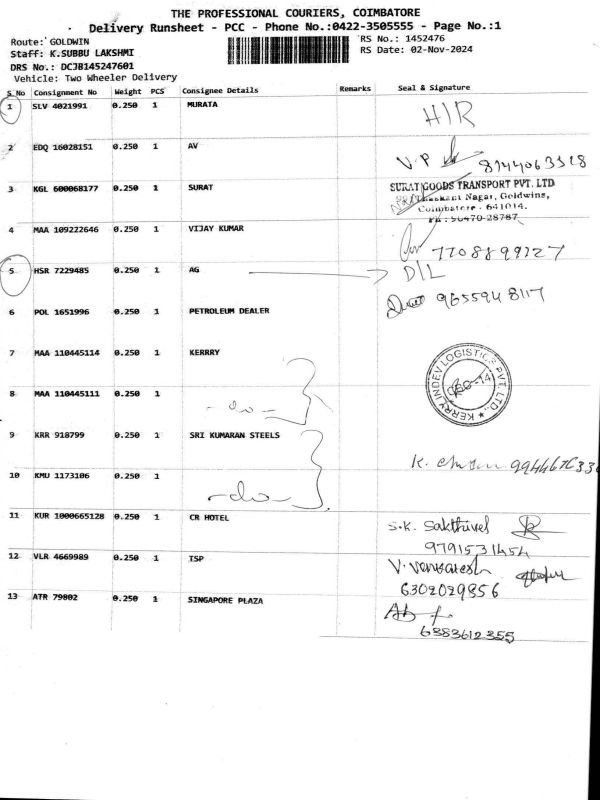 THE PROFESSIONAL COURIERS, COIMBATORE
Delivery Runsheet - PCC - Phone No.:0422-3505555 - Page No.:1
Route: GOLDWIN
RS No.: 1452476
Staff: K.SUBBU LAKSHMI
RS Date: 02-Nov-2024
DRS No.: DCJB145247601
Vehicle: Two Wheeler Delivery
S.No Consignment No Weight PCS Consignee Details Remarks Seal & Signature
1 SLV 4021991 0.250 1 MURATA
H/R
2 EDQ 16028151 0.250 1 AV
V.P 8144063318
3 KGL 600068177 0.250 1 SURAT
SURAT GOODS TRANSPORT PVT. LTD
Nagar, Goldwins,
Coimbatore - 641014.
PH : 90470-28787
4 MAA 109222646 0.250 1 VIJAY KUMAR
7708899727
5 HSR 7229485 0.250 1 AG
D/L
6 POL 1651996 0.250 1 PETROLEUM DEALER
9655948117
7 MAA 110445114 0.250 1 KERRRY
KERRY INDEV LOGISTICS PVT. LTD.,
8 MAA 110445111 0.250 1
-do-
9 KRR 918799 0.250 1 SRI KUMARAN STEELS
K.
10 KMU 1173106 0.250 1
-do-
11 KUR 1000665128 0.250 1 CR HOTEL
S.K. Sakthivel
9791531454
12 VLR 4669989 0.250 1 TSP
V. Venkatesh
6302029856
13 ATR 79802 0.250 1 SINGAPORE PLAZA
6383612355